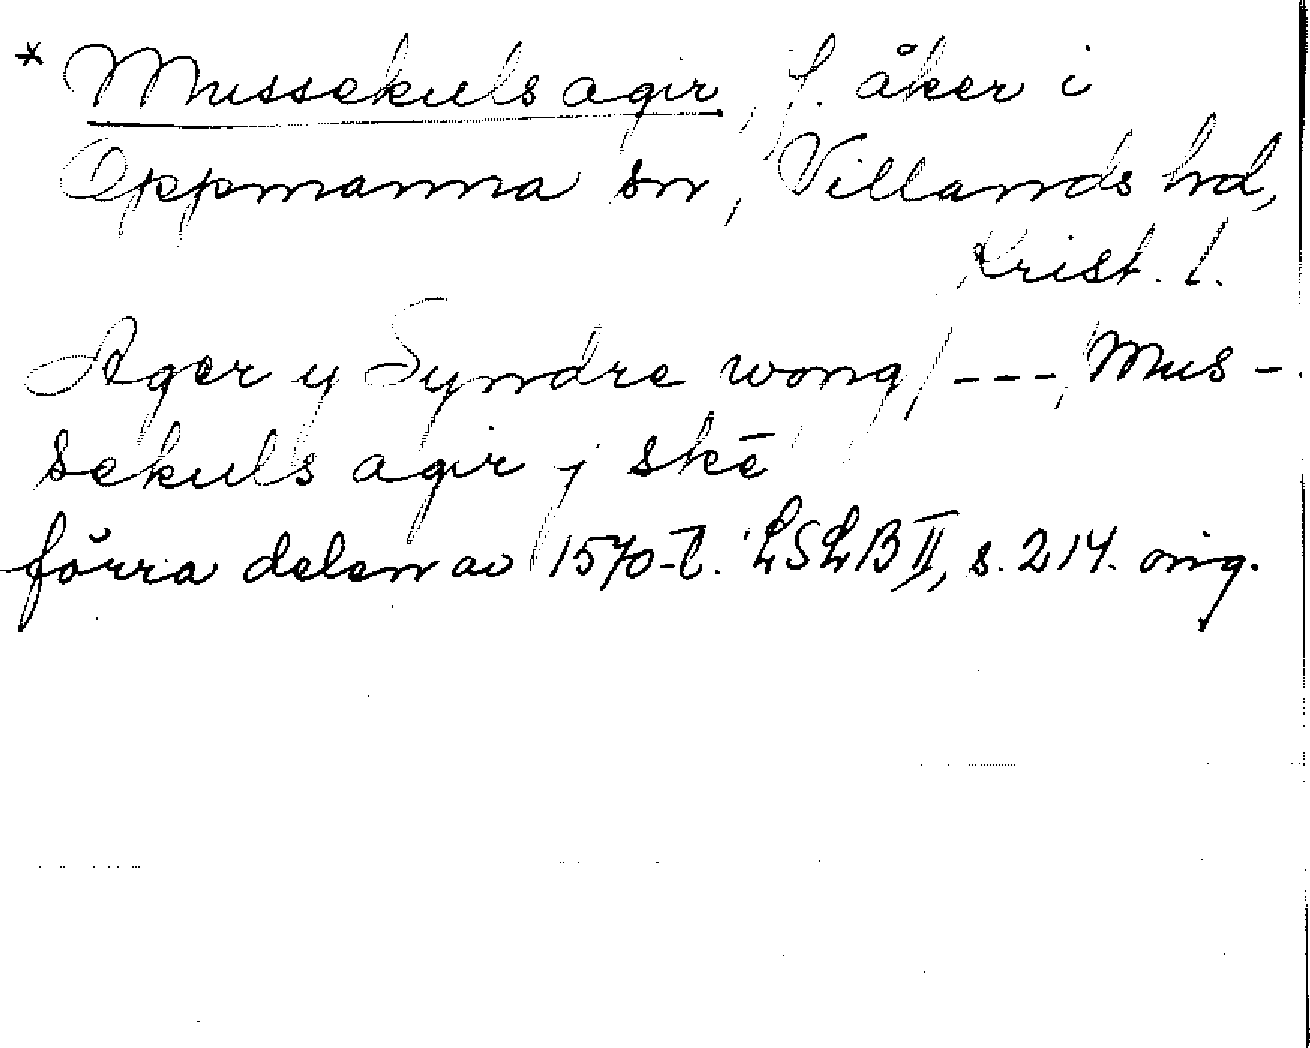 * Mussekuls agir, f. åker i
Oppmanna sn, Villands hd,
Krist. l.
Ager y Syndre wong/ ---, Mus-
sekuls agir j skē
förra delen av 1570-t. LSLB II, s. 214. orig.